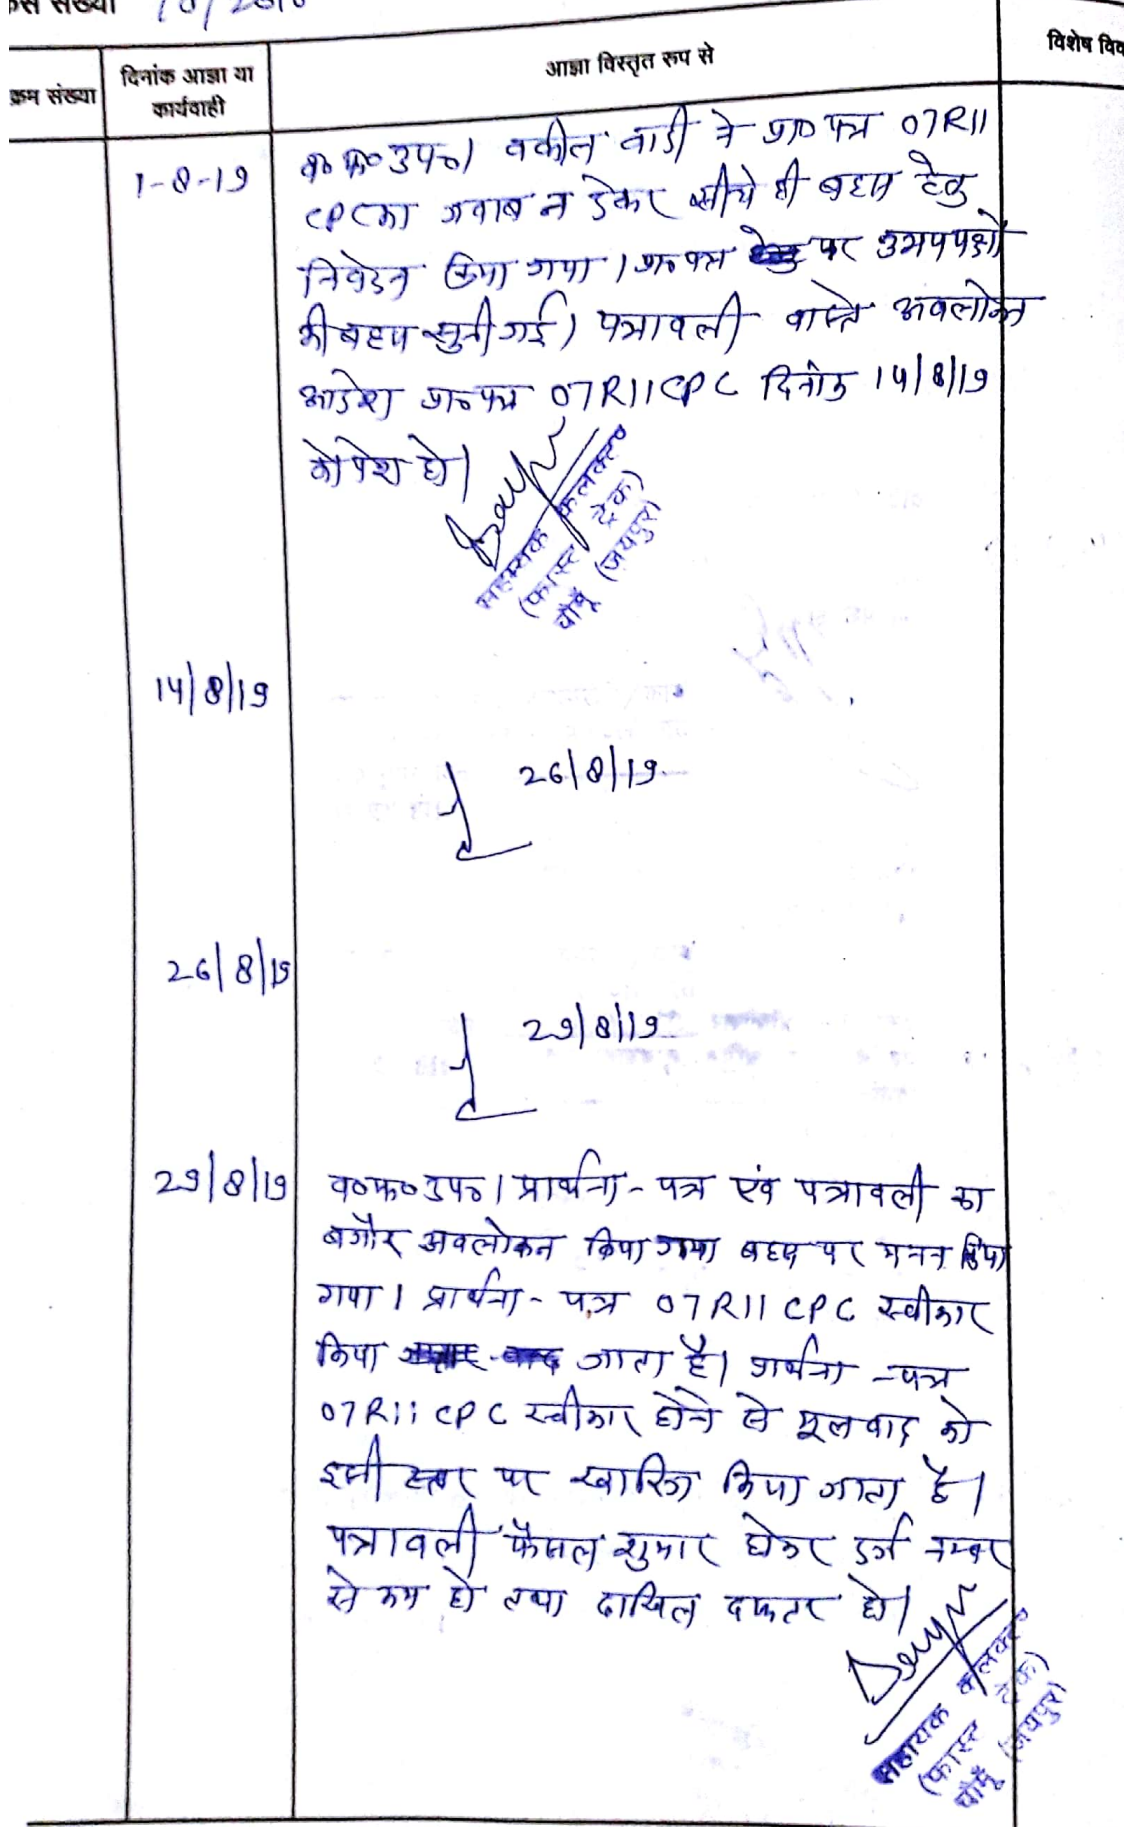 केस संख्या 10/2010
क्रम संख्या
दिनांक आज्ञा या
कार्यवाही
आज्ञा विस्तृत रूप से
विशेष विव
1-8-19
व० फ० उप०। वकील वादी ने प्रा० पत्र 07R11
CPC का जवाब न देकर सीधे ही बहस हेतु
निवेदन किया गया। प्रा० पत्र पर उभयपक्षो
की बहस सुनी गई। पत्रावली वास्ते अवलोकन
आदेश प्रा० पत्र 07R11CPC दिनांक 14/8/19
को पेश हो।
सहायक कलक्टर
(फास्ट ट्रेक)
चौमूँ (जयपुर)
14/8/19
26/8/19
26/8/19
29/8/19
29/8/19
व० फ० उप०। प्रार्थना-पत्र एंव पत्रावली का
बगौर अवलोकन किया गया बहस पर मनन किया
गया। प्रार्थना-पत्र 07R11 CPC स्वीकार
किया जाता है। प्रार्थना-पत्र
07R11 CPC स्वीकार होने से मूलवाद को
इसी स्तर पर खारिज किया जाता है।
पत्रावली फैसल शुमार होकर दर्ज नम्बर
से कम हो तथा दाखिल दफ्तर हो।
सहायक कलक्टर
(फास्ट ट्रेक)
चौमूँ (जयपुर)